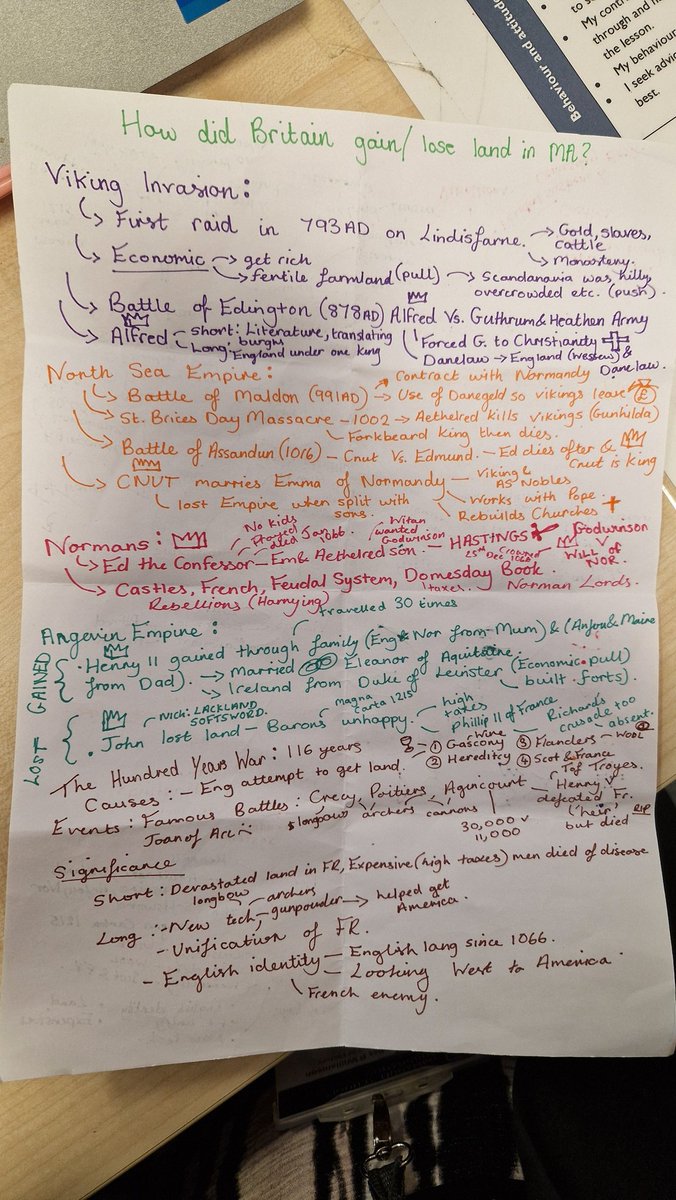 to s
My contr
through and h
the lesson.
My behaviour
I seek advic
best.
Behaviour and attitude
How did Britain gain/ lose land in MA?
Viking Invasion:
First raid in 793AD on Lindisfarne. → Gold, slaves, cattle
Monastery.
Economic → get rich
fertile farmland (pull) → Scandanavia was hilly, overcrowded etc. (push).
Battle of Edington (878AD) Alfred Vs. Guthrum & Heathen Army
Alfred short: Literature, translating
Long: burghs
England under one king
Forced G. to Christianity
Danelaw → England (Wessex) & Danelaw.
North Sea Empire: Contract with Normandy
Battle of Maldon (991AD) → Use of Danegeld so vikings leave £
St. Brices Day Massacre - 1002 → Aethelred kills Vikings (Gunhilda)
Forkbeard king then dies.
Battle of Assandun (1016) - Cnut Vs. Edmund. - Ed dies after & Cnut is king
CNUT marries Emma of Normandy - Viking & AS Nobles
Works with Pope
Rebuilds Churches +
lost Empire when split with sons.
Normans:
No kids
died Jan 1066
Witan wanted Godwinson
Ed the Confessor - Em & Aethelred son. - HASTINGS
25th DEC 1066
Godwinson
V
WILL of NOR.
Castles, French, Feudal System, Domesday Book.
taxes.
Norman Lords.
Rebellions (Harrying)
Angevin Empire: travelled 30 times
GAINED
Henry II gained through family (Eng & Nor from Mum) & (Anjou & Maine from Dad).
Married Eleanor of Aquitaine.
Ireland from Duke of Leinster (Economic pull)
built forts).
LOST
NICK: LACKLAND SOFTSWORD.
John lost land - Barons unhappy.
magna carta 1215
high taxes
Phillip II of France
Richard's crusade too absent.
The Hundred Years War: 116 years
Causes: - Eng attempt to get land.
① Gascony Wine
② Heredity
③ Flanders - WOOL
④ Scot & France
Events: Famous Battles: Crecy, Poitiers, Agincourt
T of Troyes.
Henry V defeated Fr.
(heir, but died RIP
Joan of Arc
longbow archers cannons
30,000 v 11,000
Significance
Short: Devastated land in FR, Expensive (high taxes) men died of disease
Long: - New tech, longbow archers gunpowder → helped get America.
- Unification of FR.
- English identity - English lang since 1066.
- Looking West to America
French enemy.